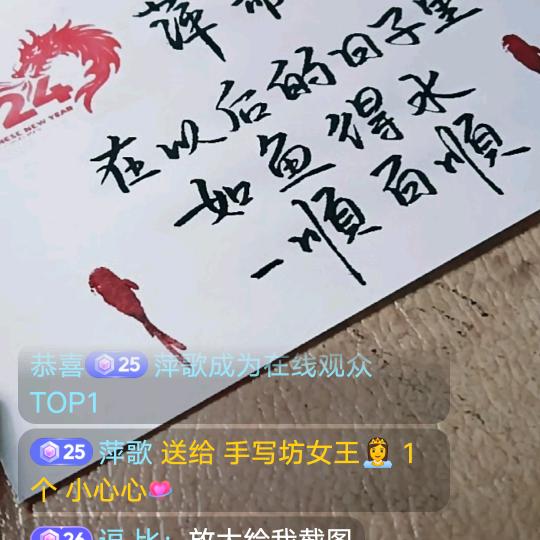 萍
在以后的日子里
如鱼得水
一順百順
24
NESE NEW YEAR
恭喜 25 萍歌成为在线观众
TOP1
25 萍歌 送给 手写坊女王👸 1
个 小心心💗
26 逗比：放大给我截图